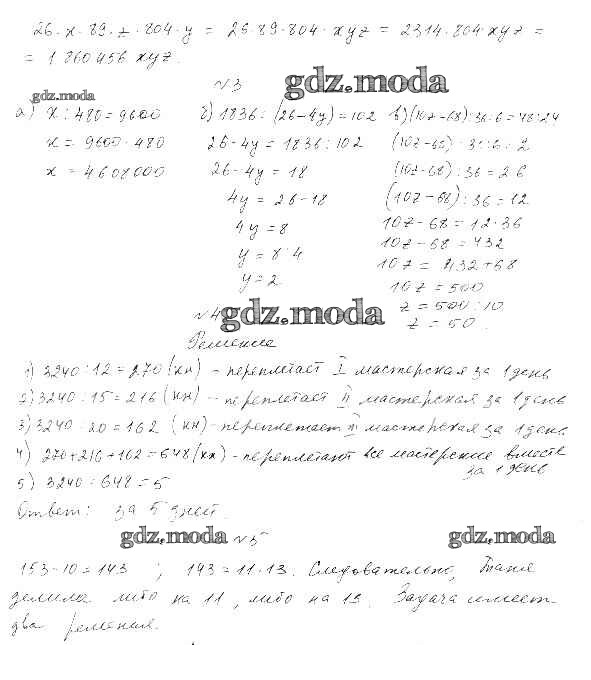 26·x·89·z·804·y = 26·89·804·xyz = 2314·804·xyz =
= 1 860 456 xyz.
№3 gdz.moda
gdz.moda
а) x : 480 = 9600
x = 9600·480
x = 4608000
б) 1836 : (26-4y) = 102
26-4y = 1836 : 102
26-4y = 18
4y = 26-18
4y = 8
y = 8:4
y = 2
в) (10z-68):36·6 = 48:24
(10z-68):36:6 = 2
(10z-68):36 = 2·6
(10z-68):36 = 12
10z-68 = 12·36
10z-68 = 432
10z = 432+68
10z = 500
z = 500:10
z = 50.
№4 gdz.moda
Решение
1) 3240:12=270 (кн) - переплетает I мастерская за 1 день
2) 3240:15=216 (кн) - переплетает II мастерская за 1 день
3) 3240:20=162 (кн) - переплетает III мастерская за 1 день
4) 270+216+162=648 (кн) - переплетают все мастерские вместе
за 1 день
5) 3240:648=5
Ответ: за 5 дней.
gdz.moda №5 gdz.moda
153-10=143 ; 143=11·13. Следовательно, Таня
делила либо на 11, либо на 13. Задача имеет
два решения.